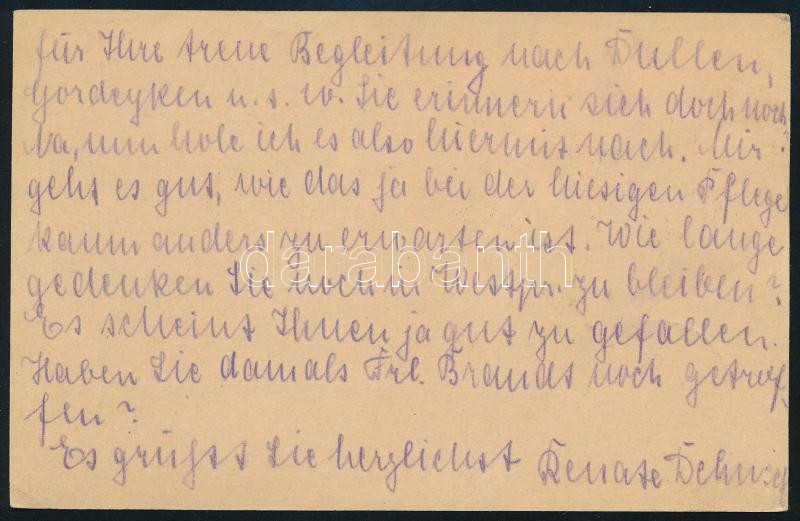 für Ihre treue Begleitung nach Dullen,
Gordeyken u. s. w. Sie erinnern sich doch noch?
Na, nun hole ich es also hiermit nach. Mir
geht es gut, wie das ja bei der hiesigen Pflege
kaum anders zu erwarten ist. Wie lange
darabanth
gedenken Sie noch in Westpr. zu bleiben?
Es scheint Ihnen ja gut zu gefallen.
Haben Sie damals Frl. Brandt noch getrof-
fen?
Es grüßt Sie herzlichst Renate